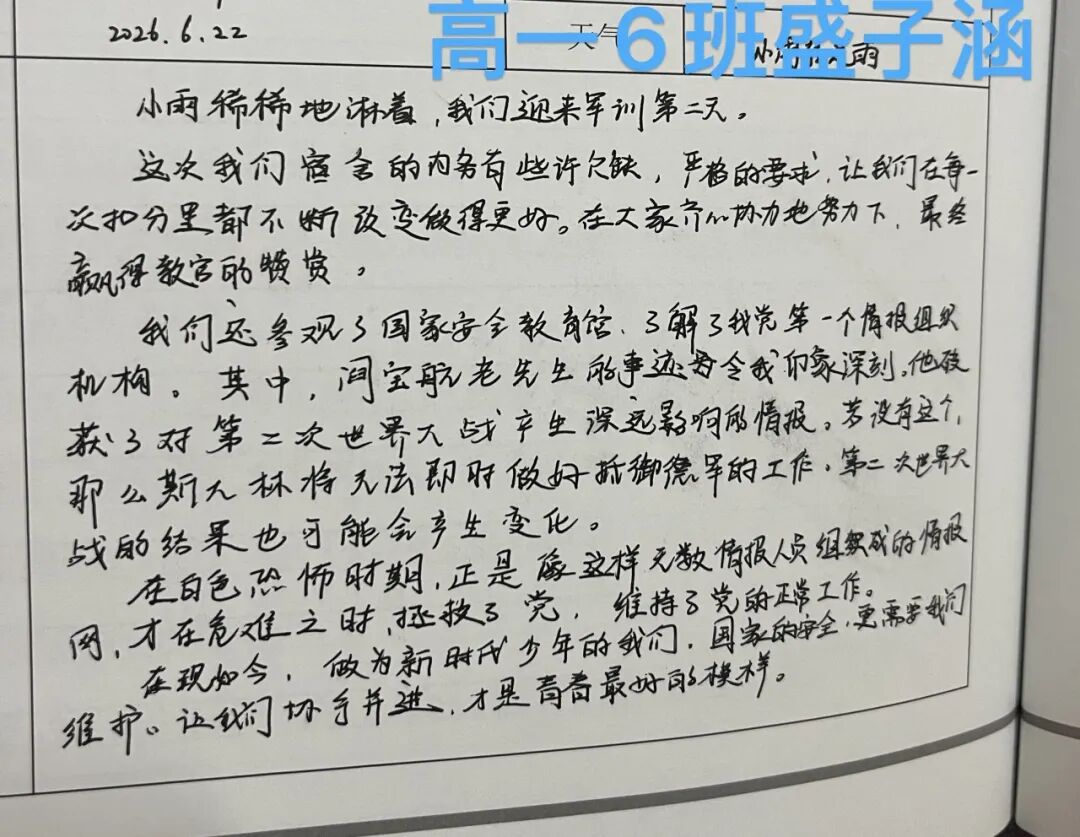 2026.6.22
天气
高一6班盛子涵
小雨稀稀地淋着,我们迎来军训第二天。
这次我们宿舍的内务有些许欠缺,严格的要求,让我们在每一
次扣分里都不断改变做得更好。在大家齐心协力地努力下,最终
赢得教官的赞赏。
我们还参观了国家安全教育馆、了解了我党第一个情报组织
机构。其中,阎宝航老先生的事迹令我印象深刻。他破
获了对第二次世界大战产生深远影响的情报。若没有这个,
那么斯大林将无法即时做好抵御德军的工作。第二次世界大
战的结果也可能会产生变化。
在白色恐怖时期,正是像这样无数情报人员组织成的情报
网,才在危难之时,拯救了党,维持了党的正常工作。
在现如今,做为新时代少年的我们,国家的安全,更需要我们
维护。让我们协手并进,才是青春最好的模样。